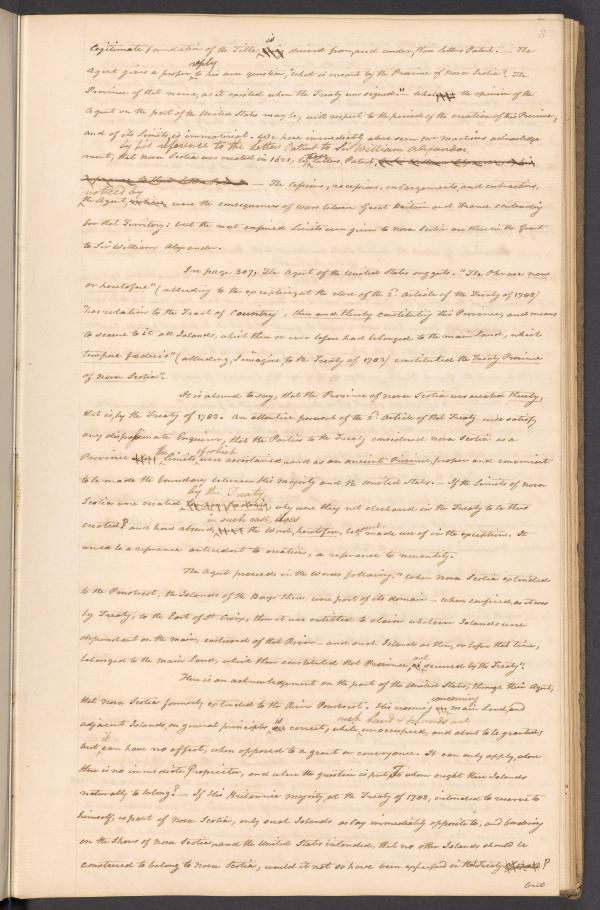 3
Legitimate foundation of the Title, is derived from, and under, those Letters Patent. — The
Agent gives a proper reply to his own question, "What is meant by the Province of Nova Scotia? The
Province of that name, as it existed when the Treaty was signed." — What the opinion of the
Agent on the part of the United States may be, with respect to the periods of the creation of this Province,
and of its Limits, is immaterial. We have immediately above seen acknowledge
by his reference to the Letters Patent to Sir William Alexander
ment, that Nova Scotia was created in 1621, by those Letters Patent,
— The cessions, recessions, enlargements, and contractions,
noticed by
the Agent, were the consequences of wars between Great Britain and France contending
for that Territory: but the most confined Limits ever given to Nova Scotia are those in the Grant
to Sir William Alexander.
In page 307, The Agent of the United States suggests. "The Phrase now
or heretofore" (alluding to the exception at the close of the 2d. Article of the Treaty of 1783)
"has relation to the Tract of Country, then and thereby constituting this Province, and means
to secure to it all Islands, which then or ever before had belonged to the main land, which
tempore foederis" (alluding, I imagine, to the Treaty of 1783) constituted the Treaty Province
of Nova Scotia".
It is absurd to say, that the Province of Nova Scotia was created thereby,
that is, by the Treaty of 1783. An attentive perusal of the 2d. Article of that Treaty will satisfy
any dispassionate Enquirer, that the Parties to the Treaty considered Nova Scotia as a
Province the Limits of which were ascertained, and as an ancient Province, proper and convenient
to be made the boundary between His Majesty and the United States. — If the Limits of Nova
by the Treaty
Scotia were created why were they not declared in the Treaty to be thus
in such case, does
created? and how absurd, the Word, heretofore, be made use of in the exception. It
would be a reference antecedent to creation, a reference to nonentity.
The Agent proceeds in the Words following. "When Nova Scotia extended
to the Penobscot, the Islands of the Bays there were part of its domain — when confined, as it was
by Treaty, to the East of St Croix, then it was entitled to claim whatever Islands were
dependent on the main, eastward of that River — and such Islands as then, or before that time,
belonged to the main Land, which then constituted that Province, are secured by the Treaty".
Here is an acknowledgement on the part of the United States, through their Agent,
that Nova Scotia formerly extended to the River Penobscot. His reasoning concerning main Land, and
such Land & Islands are
adjacent Islands, on general principles is correct, while unoccupied, and about to be granted;
but it can have no effect, when opposed to a grant or conveyance. It can only apply, where
there is no immediate Proprietor, and where the question is put, To whom ought these Islands
naturally to belong? — If His Britannic Majesty, at the Treaty of 1783, intended to reserve to
himself, as part of Nova Scotia, only such Islands as lay immediately opposite to, and bordering
on the Shores of Nova Scotia, and the United States intended, that no other Islands should be
construed to belong to Nova Scotia, would it not so have been expressed in the Treaty?
but